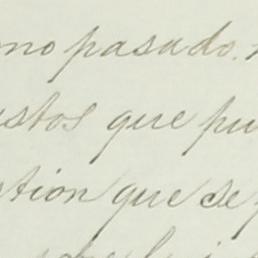 ono pasado.
stos que pu
stion que se